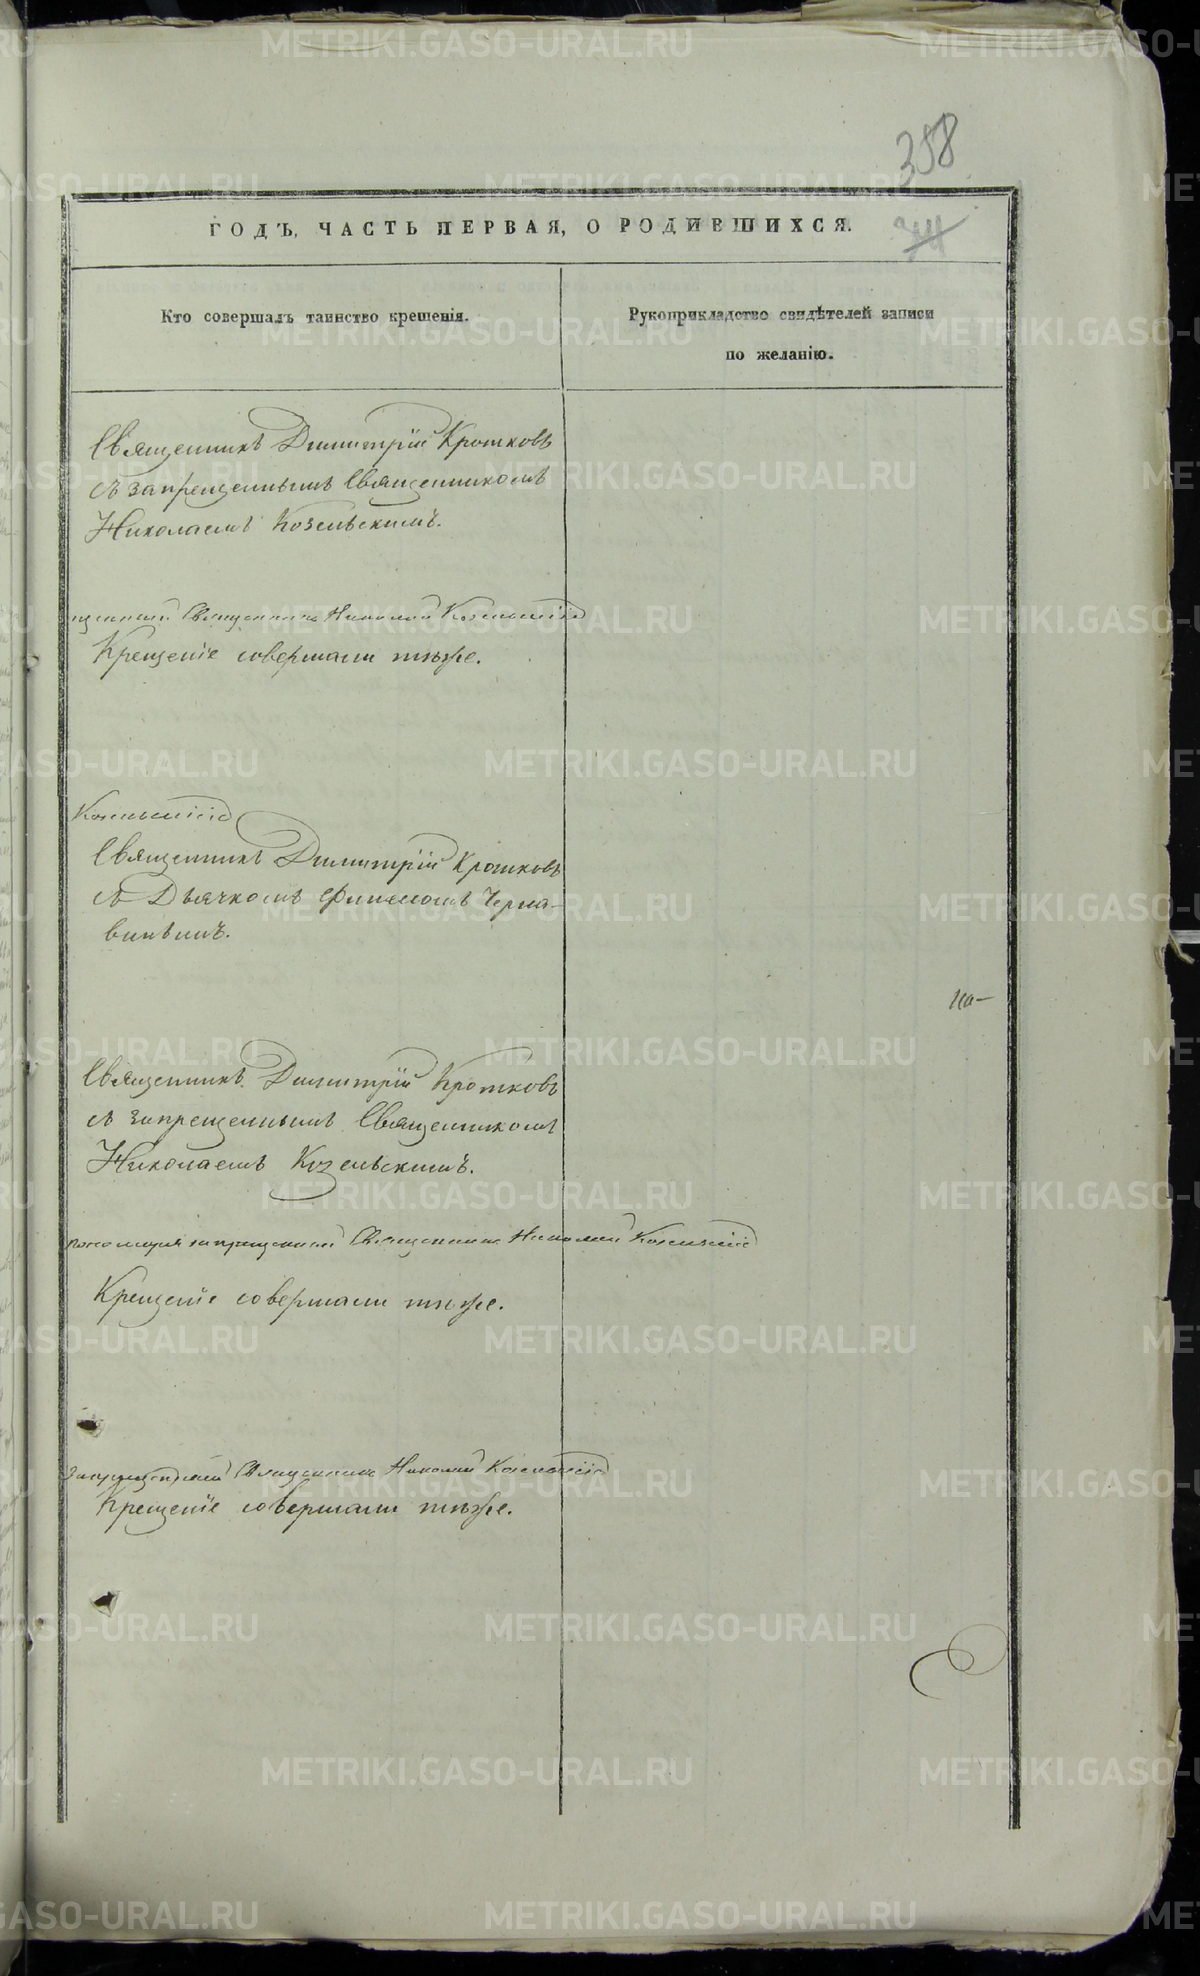 358
ГОДЪ, ЧАСТЬ ПЕРВАЯ, О РОДИВШИХСЯ.
Кто совершалъ таинство крещенія.
Рукоприкладство свидѣтелей записи
по желанію.
Священникъ Димитрій Кротковъ
съ запрещеннымъ Священникомъ
Николаемъ Козельскимъ.
щенный Священникъ Николай Козельскій
Крещеніе совершали тѣже.
Козельскій
Священникъ Димитрій Кротковъ
съ Дьячкомъ Черма-
винымъ.
на-
Священникъ Димитрій Кротковъ
съ запрещеннымъ Священникомъ
Николаемъ Козельскимъ.
запрещенный Священникъ Николай Козельскій
Крещеніе совершали тѣже.
Запрещенный Священникъ Николай Козельскій
Крещеніе совершали тѣже.
METRIKI.GASO-URAL.RU